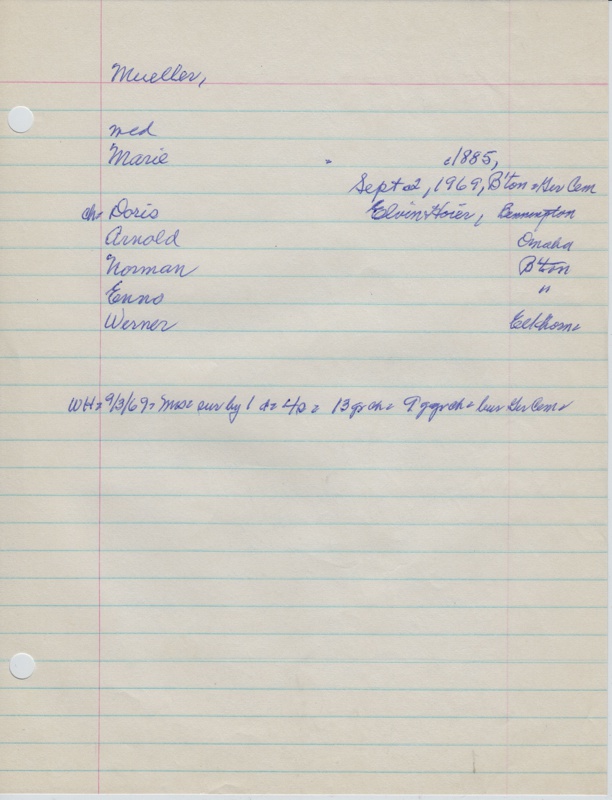 Mueller,
med
Marie - c1885,
Sept 2, 1969, B'ton - Ger Cem
ch - Doris Elvin Hoier, Bennington
Arnold Omaha
Norman B'ton
Enno "
Werner Elkhorn -
WH - 9/3/69 - Mrs - sur by 1 d - 4 s - 13 gr ch - 9 ggr ch - bur Ger Cem -